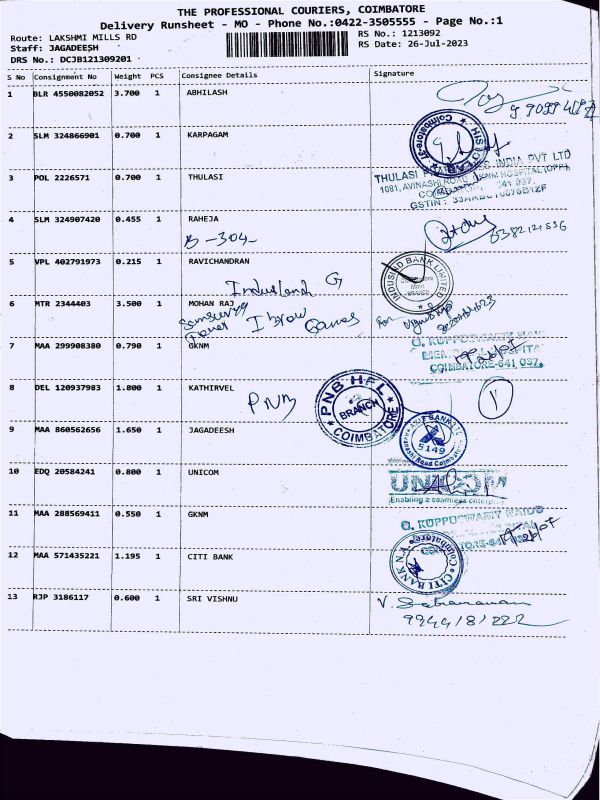 THE PROFESSIONAL COURIERS, COIMBATORE
Delivery Runsheet - MO - Phone No.:0422-3505555 - Page No.:1
Route: LAKSHMI MILLS RD
RS No.: 1213092
Staff: JAGADEESH
RS Date: 26-Jul-2023
DRS No.: DCJB121309201
S No Consignment No Weight PCS Consignee Details Signature
1 BLR 4550082052 3.700 1 ABHILASH
2 SLM 324866901 0.700 1 KARPAGAM
Coimbatore-37
3 POL 2226571 0.700 1 THULASI
THULASI INDIA PVT LTD
1081, AVINASHI ROAD
4 SLM 324907420 0.455 1 RAHEJA
B - 304
5 VPL 402791973 0.215 1 RAVICHANDRAN
INDUSIND BANK LIMITED
BRANCH
Indusland G
6 MTR 2344403 3.500 1 MOHAN RAJ
Samsung
I brow Games
For
7 MAA 299908380 0.790 1 GKNM
G. KUPPUSWAMY NAIDU
COIMBATORE-641 037.
8 DEL 120937983 1.800 1 KATHIRVEL
PNB
PNB HFL
BRANCH
COIMBATORE
1
9 MAA 860562656 1.650 1 JAGADEESH
AXIS BANK
5149
10 EDQ 20584241 0.800 1 UNICOM
UNICOM
Enabling a seamless enterprise
11 MAA 288569411 0.550 1 GKNM
G. KUPPUSWAMY NAIDU
12 MAA 571435221 1.195 1 CITI BANK
CITI BANK N.A.
Coimbatore
13 RJP 3186117 0.600 1 SRI VISHNU
V. Sabaranan
9944181222